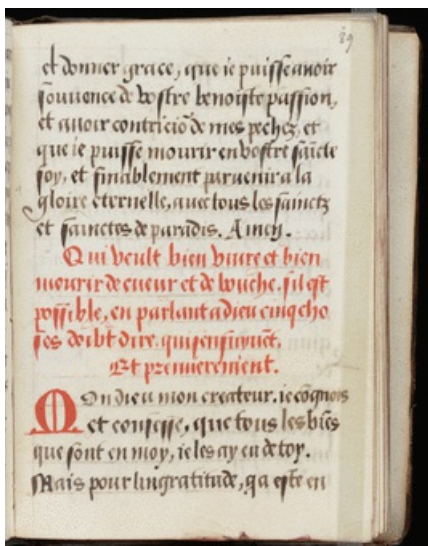 89
et donner grace, que ie puisse auoir
souuence de vostre benoiste passion,
et auoir contriciõ de mes pechez, et
que ie puisse mourir en vostre saicte
foy, et finablement paruenir a la
gloire eternelle, auec tous les sainctz
et sainctes de paradis. Amen.
Qui veult bien viure et bien
mourir de cueur et de bouche, sil est
possible, en parlant a dieu cinq cho
ses doibt dire, qui sensuyuēt,
Et premierement.
Mon dieu mon createur, ie cõgnois
et confesse, que tous les biēs
que sont en moy, ie les ay eu de toy.
Mais pour lingratitude, qa este en